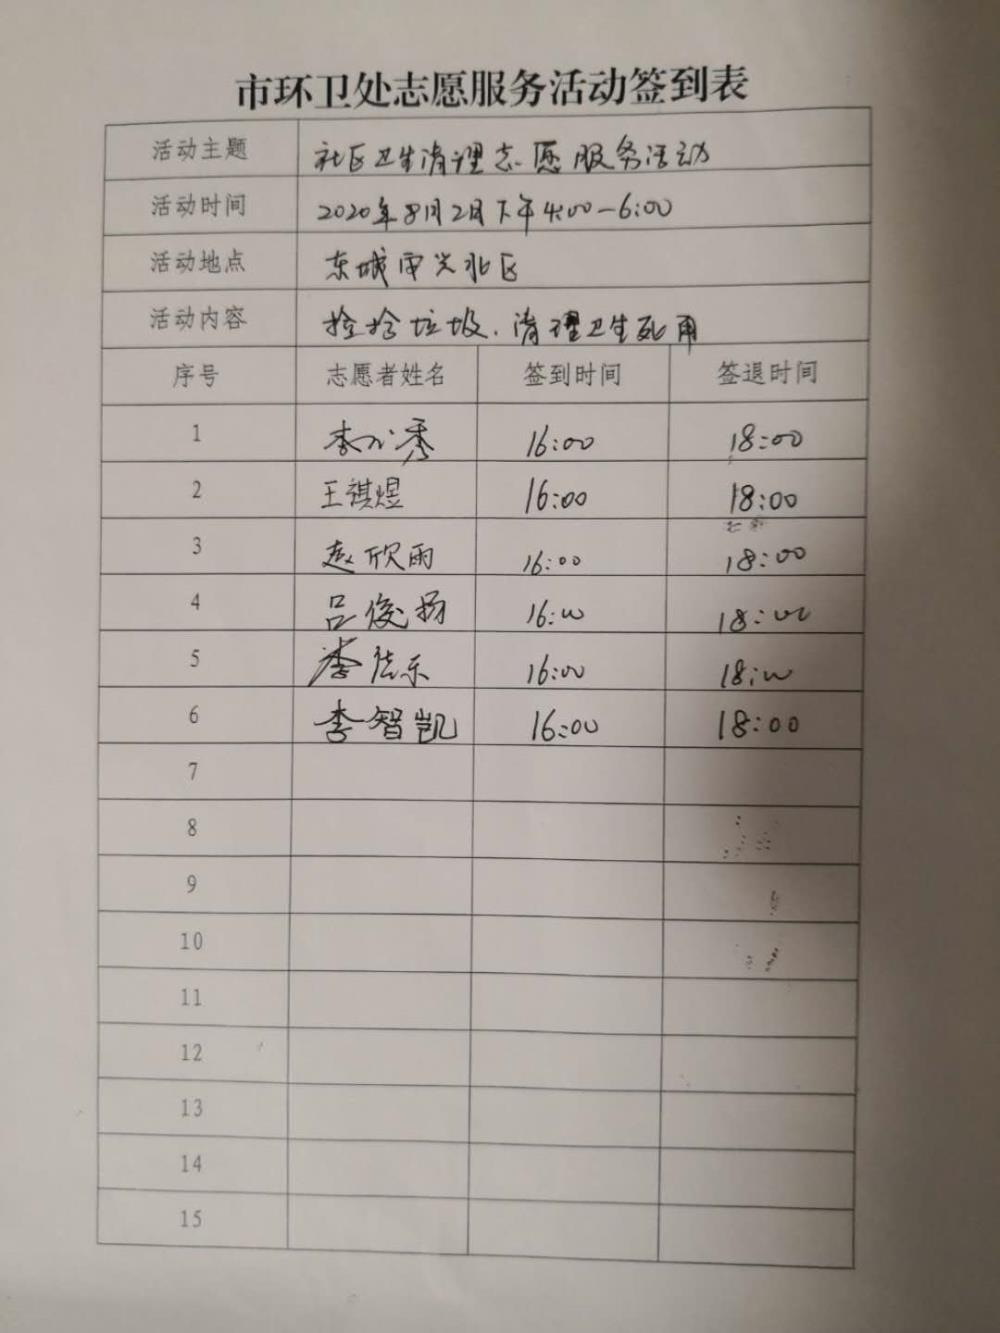 市环卫处志愿服务活动签到表
活动主题 社区卫生清理志愿服务活动
活动时间 2020年8月2日下午4:00-6:00
活动地点 东城安兴北区
活动内容 捡拾垃圾、清理卫生死角
序号 志愿者姓名 签到时间 签退时间
1 李小秀 16:00 18:00
2 王祺煜 16:00 18:00
3 赵欣雨 16:00 18:00
4 吕俊扬 16:00 18:00
5 李乐 16:00 18:00
6 李智凯 16:00 18:00
7
8
9
10
11
12
13
14
15